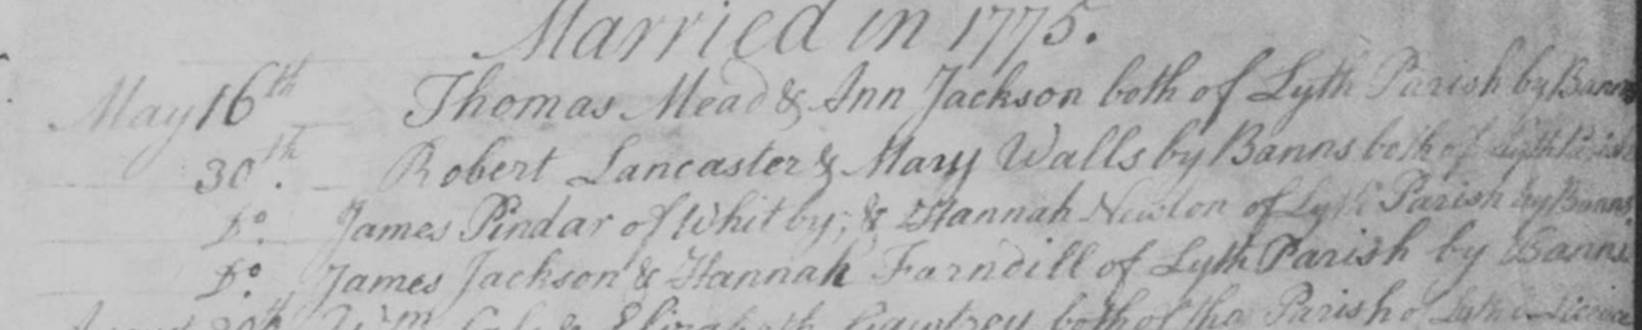 Married in 1775.
May 16th Thomas Mead & Ann Jackson both of Lyth Parish by Banns
30th. Robert Lancaster & Mary Walls by Banns both of Lyth Parish
Do. James Pindar of Whitby, & Hannah Newton of Lyth Parish by Banns
Do. James Jackson & Hannah Farndill of Lyth Parish by Banns
Wm & Elizabeth both of the Parish of Lyth